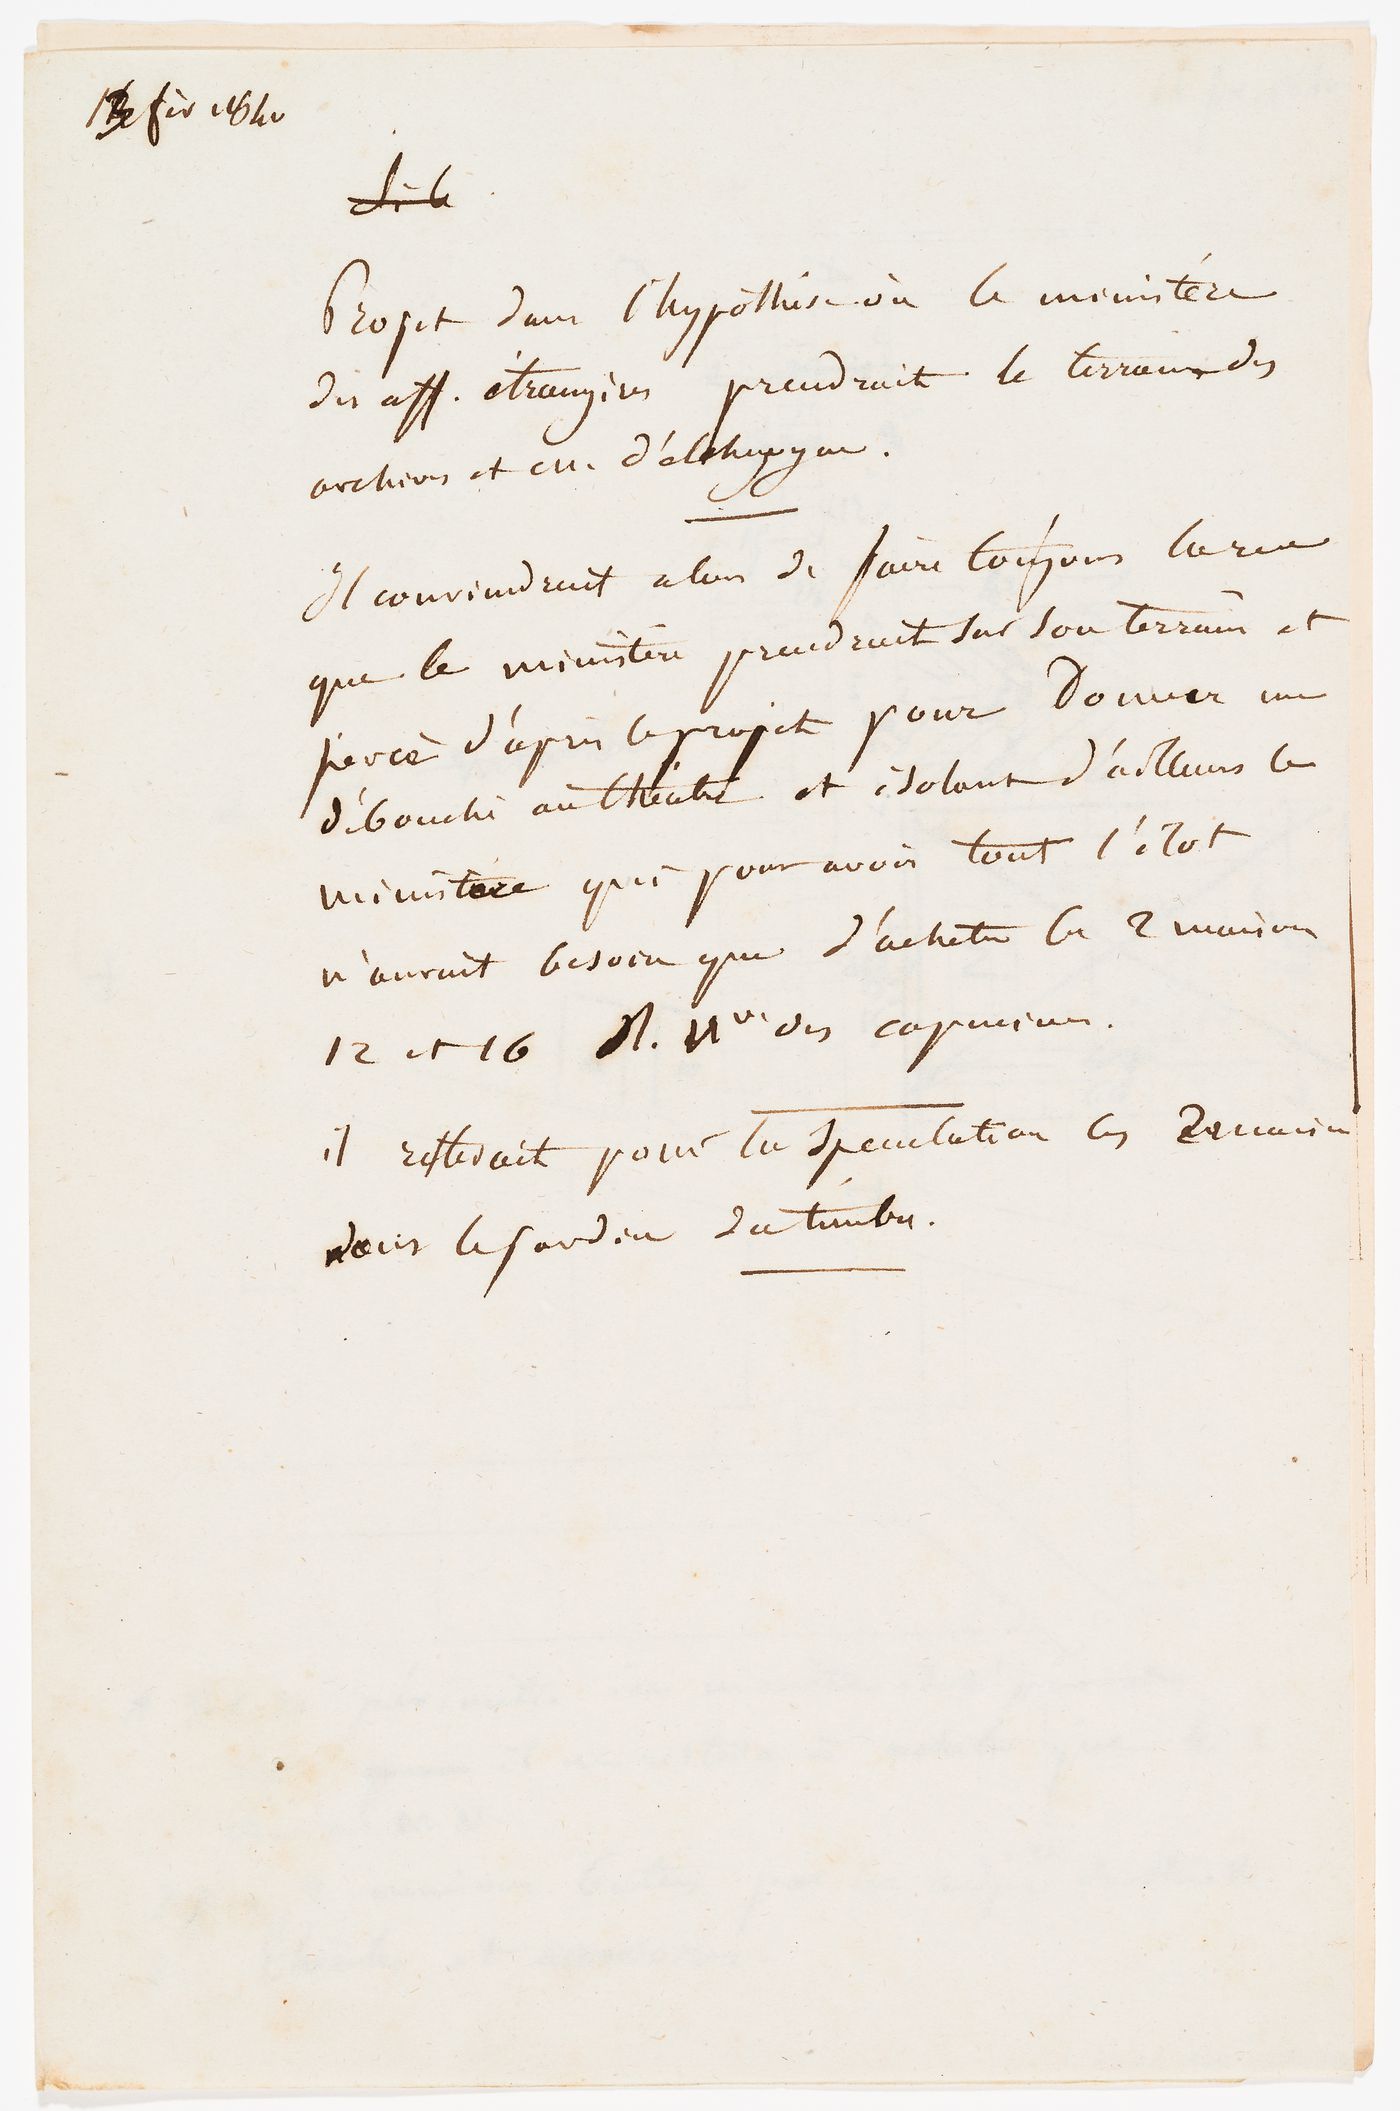 fév 1840
Projet dans l'hypothèse où le ministère
des aff. étrangères prendrait le terrain des
archives et
Il conviendrait alors de faire toujours la rue
que le ministère prendrait sur son terrain et
percé d'après le projet pour Donner un
débouché au théâtre et isolant d'ailleurs le
ministère qui pour avoir tout l'ilot
n'aurait besoin que d'acheter les 2 maisons
12 et 16 R. Nve des capucines.
il resterait pour la spéculation les 2 maisons
dans le jardin du timbre.